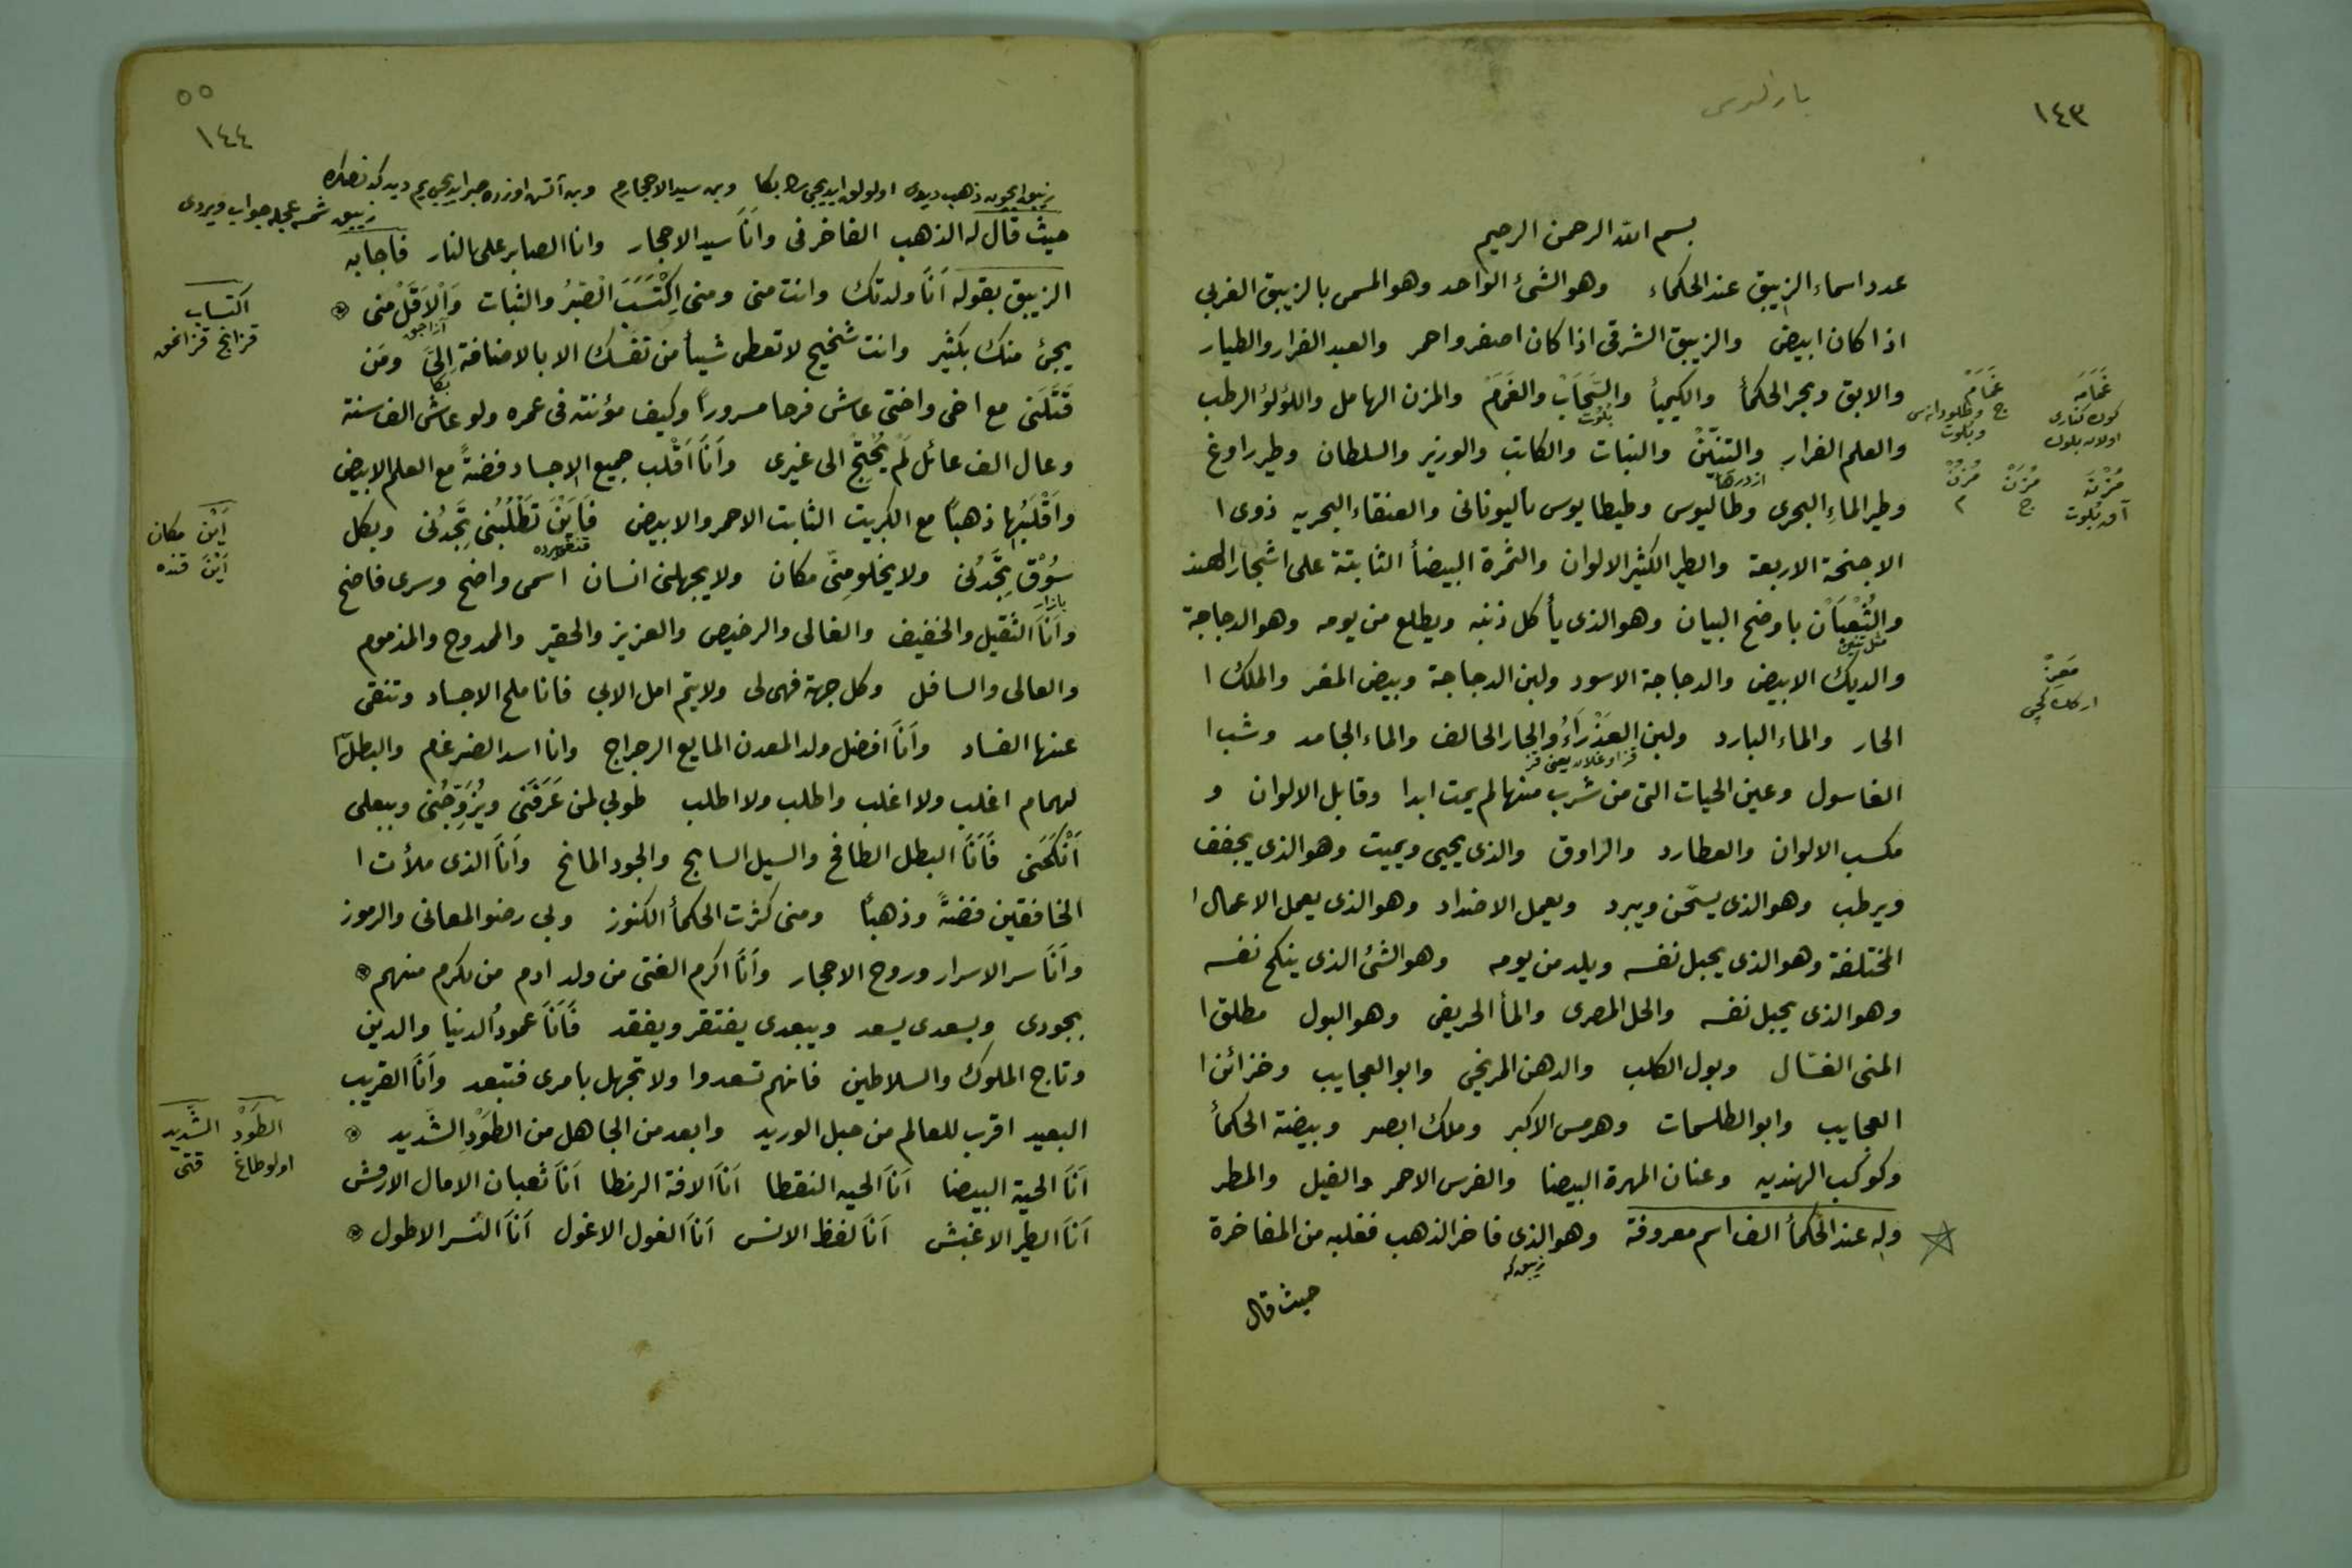 ١٤٣
بسم الله الرحمن الرحيم
عدد اسماء الزيبق عند الحكماء وهو الشئ الواحد وهو المسمى بالزيبق الغربي
اذا كان ابيض والزيبق الشرقى اذا كان اصفر واحمر والعبد الفرار والطيار
والابق وبحر الحكمأ والكيميأ والسَّحَابْ والغَمَمْ والمزن الهامل واللؤلؤ الرطب
بلوت
والعلم الفرار والتنّينْ والنبات والكاتب والوزير والسلطان وطير راوغ
ازدرها
وطير الماءِ البحرى وطاليوس وطيطايوس باليونانى والعنقاء البحريه ذوى ا
الاجنحة الاربعة والطير الكثير الالوان والثمرة البيضأ الثابتة على اشجار الهند
والثُعْبَاْن باوضح البيان وهو الذى يأكل ذنبه ويطلع من يومه وهو الدجاجة
مثل تنين
والديك الابيض والدجاجة الاسود ولبن الدجاجة وبيض المغر والملك ا
الحار والماء البارد ولبن العَذْرَاءُ والجار الحالف والماء الجامد وشب ا
قز اوغلان يعنى قز
الغاسول وعين الحيات التى من شرب منها لم يمت ابدا وقابل الالوان و
مكسب الالوان والعطارد والزاوق والذى يحيى ويميت وهو الذى يجفف
ويرطب وهو الذى يسخّن ويبرد ويعمل الاضداد وهو الذى يعمل الاعمال ا
المختلفة وهو الذى يحبل نفسه ويلد من يومه وهو الشئ الذى ينكح نفسه
وهو الذى يحبل نفسه والخل المصرى والمأ الحريف وهو البول مطلق ا
المنى الغسّال وبول الكلب والدهن المريخى وابو العجايب وخزائن ا
العجايب وابو الطلسمات وهرمس الاكبر وملك ابصر وبيضة الحكمأ
وكوكب الهنديه وعنان المهرة البيضا والفرس الاحمر والفيل والمطر
وله عند الحكمأ الف اسم معروفة وهو الذى فاخر الذهب فغلبه من المفاخرة
زيبق كه
حيث قال
غَمَامَه
كوك كنارى
اولان بلوت
غَمَامْ
ج
مُزْنَة
آق بلوت
مُزَنْ
ج
مُزْنْ
م
مَعِزْ
اركك كچى
٥٥
١٤٤
حيث قال له الذهب الفاخر فى وَاَنَاَ سيد الاحجار وانا الصابر على النار فاجابه
الزيبق بقوله اَنَاَ ولدتك وانت منى ومنى اِكْتَسَبَ الصَّبْرُ والثبات وَاْلاَقَلْ منى
يجئ منك بكثير وانت شحيح لا تعطى شيأ من نفسك الا بالاضافة اِلَىَّ ومَن
بكا
قَتَلَنى مع اخى واختى عاش فرحا مسروراً وكيف مؤنته فى عمره ولو عاش الف سنة
وعال الف عائل لَمْ يُحْتِجْ الى غيرى واَنَاَ اَقْلب جميع الاجساد فضةً مع العلم الابيض
واَقْلَبُها ذهباً مع الكبريت الثابت الاحمر والابيض فَاَيَنْ تَطْلُبُنى تَجِدُنى وبكل
سُوْق تَجِدُنى ولا يخلو مِنّى مكان ولا يجهلنى انسان اسمى واضح وسرى فاضح
بازار
واَنَاَ الثقيل والخفيف والغالى والرخيص والعزيز والحقير والممدوح والمذموم
والعالى والسافل وكل جهة فهى لى ولا يتم امل الابى فانا ملح الاجساد وتنقى
عنها الفساد واَنَاَ افضل ولد المعدن المايع الرجراج وانا اسد الضرغم والبطل ا
لهمام اغلب ولا اغلب واطلب ولا اطلب طوبى لمن عَرَفَنى ويُزَوِّجُنى وببعلى
اَنْكَحَنى فَاَنَاَ البطل الطافح والسيل السابح والجود المانح واَنَاَ الذى ملأت ا
الخافقين فضةً وذهباً ومنى كثرت الحكمأ الكنوز وبى رضو المعانى والرموز
واَنَاَ سر الاسرار وروح الاحجار واَنَاَ اكرم الفتى من ولد ادم من يكرم منهم
بجودى وبسعدى يسعد وببعدى يفتقر ويفقد فَاَنَاَ عمودُ الدنيا والدين
وتاج الملوك والسلاطين فانهم تسعدوا ولا تجهل بامرى فتبعد واَنَاَ القريب
البعيد اقرب للعالم من حبل الوريد وابعد من الجاهل من الطَوْدِ الشَديد
اَنَاَ الحية البيضا اَنَاَ الحيه النقطا اَنَاَ الافة الرقطا اَنَاَ ثعبان الامال الارقش
اَنَاَ الطير الاغبش اَنَاَ لفظ الانس اَنَاَ الغول الاغول اَنَاَ النسر الاطول
اكتساب
قزانج قزانمق
اَيْن مكان
اَيْنَ قنده
الطَوْد الشَّديد
اولو طاغ قتى